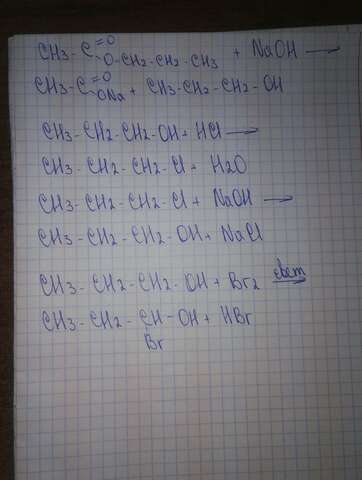 CH3-C=O O-CH2-CH2-CH3 + NaOH →
CH3-C=O ONa + CH3-CH2-CH2-OH
CH3-CH2-CH2-OH + HCl →
CH3-CH2-CH2-Cl + H2O
CH3-CH2-CH2-Cl + NaOH →
CH3-CH2-CH2-OH + NaCl
CH3-CH2-CH2-OH + Br2 свет
CH3-CH2-CH-OH + HBr
Br